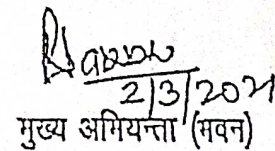 2/3/2021
मुख्य अभियन्ता (भवन)